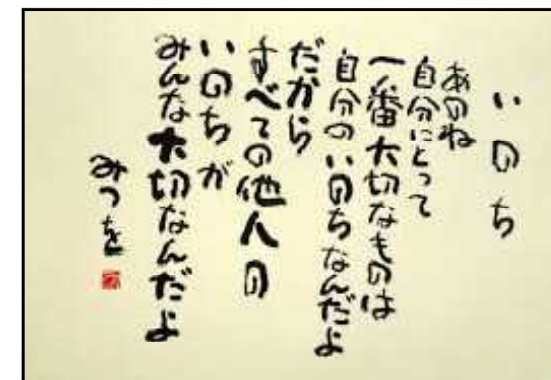 いのち
あのね
自分にとって
一番大切なものは
自分のいのちなんだよ
だから
すべての他人の
いのちが
みんな大切なんだよ
みつを